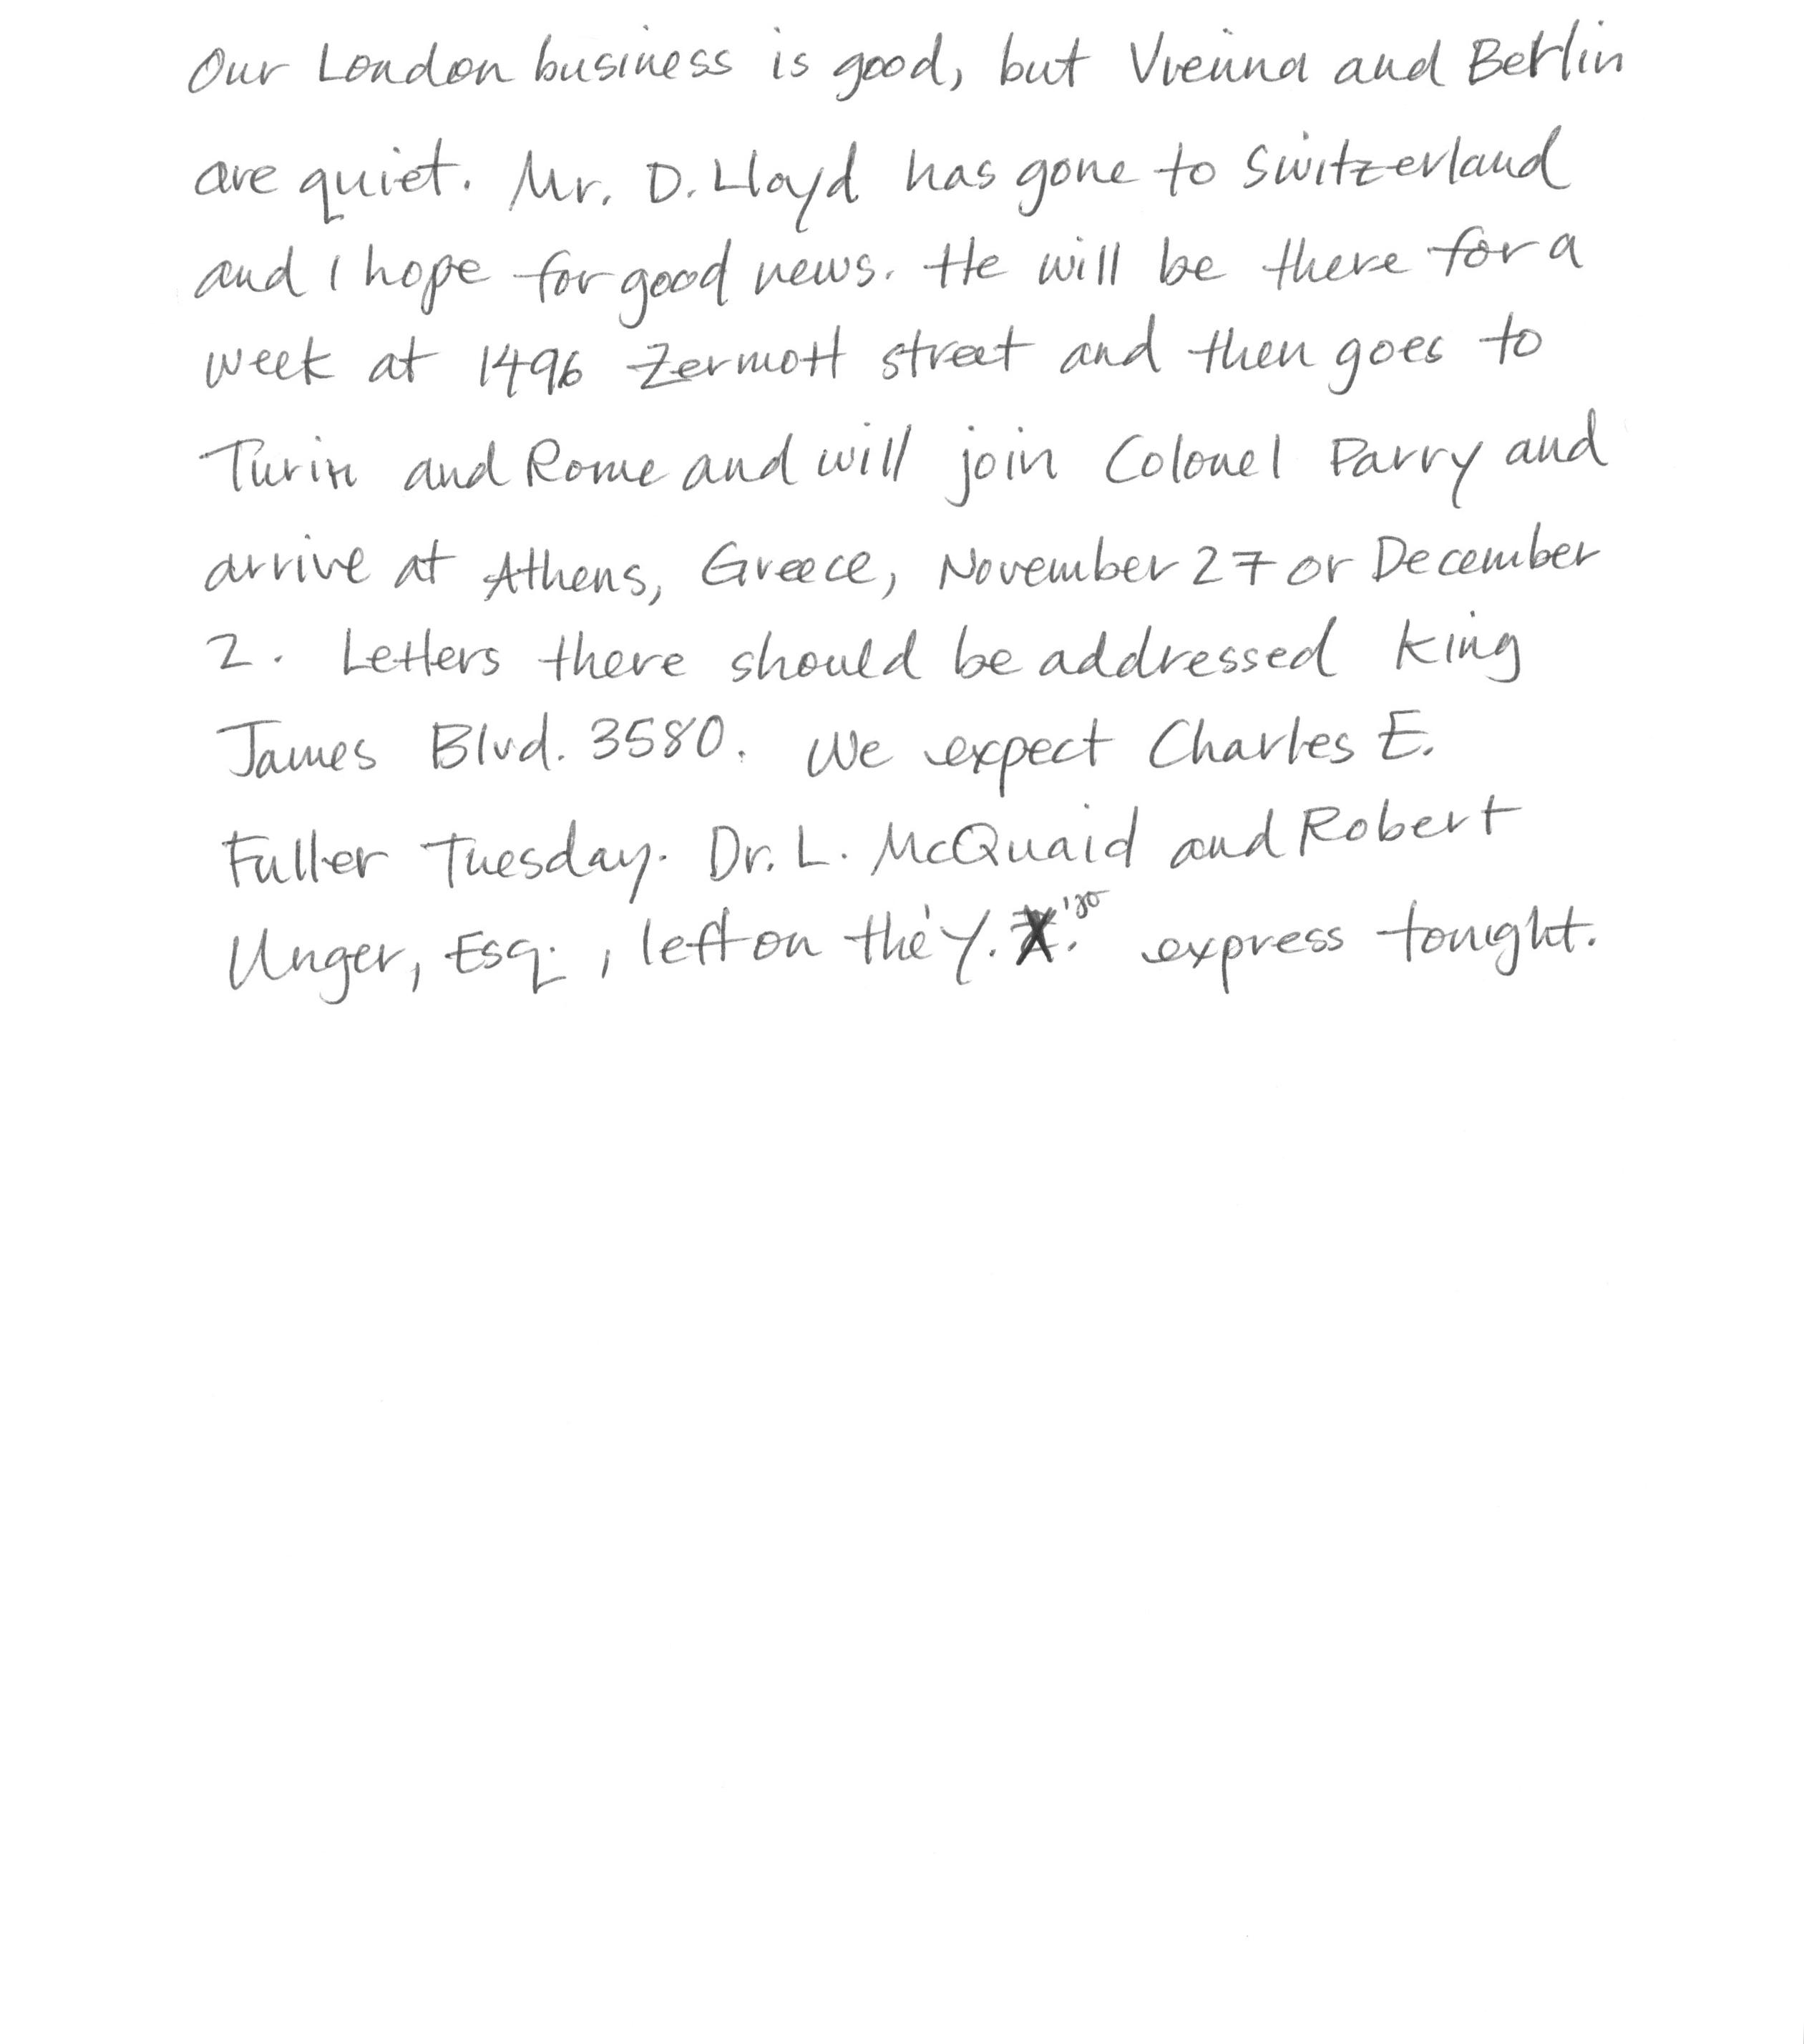 Our London business is good, but Vienna and Berlin
are quiet. Mr. D. Lloyd has gone to Switzerland
and I hope for good news. He will be there for a
week at 1496 Zermott street and then goes to
Turin and Rome and will join Colonel Parry and
arrive at Athens, Greece, November 27 or December
2. Letters there should be addressed King
James Blvd. 3580. We expect Charles E.
Fuller Tuesday. Dr. L. McQuaid and Robert
Unger, Esq., left on the Y. X. express tonight.